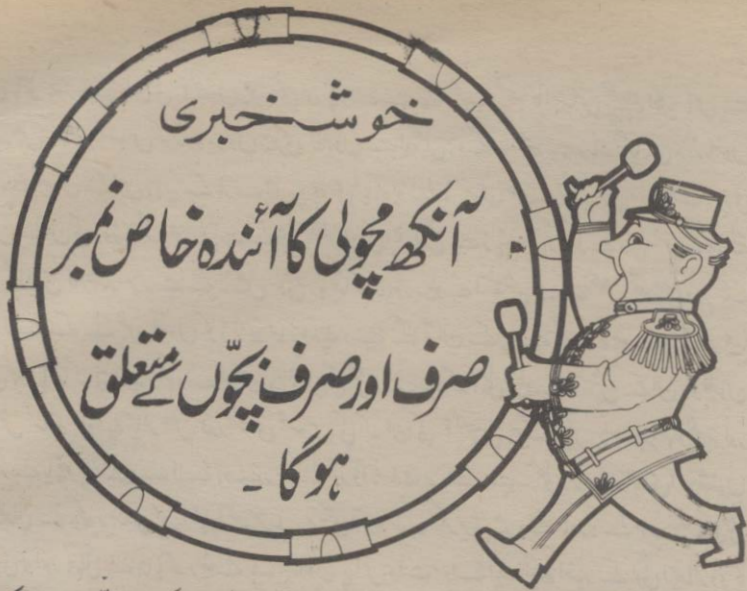 خوشخبری
آنکھ مچولی کا آئندہ خاص نمبر
صرف اور صرف بچّوں کے متعلق
ہوگا۔